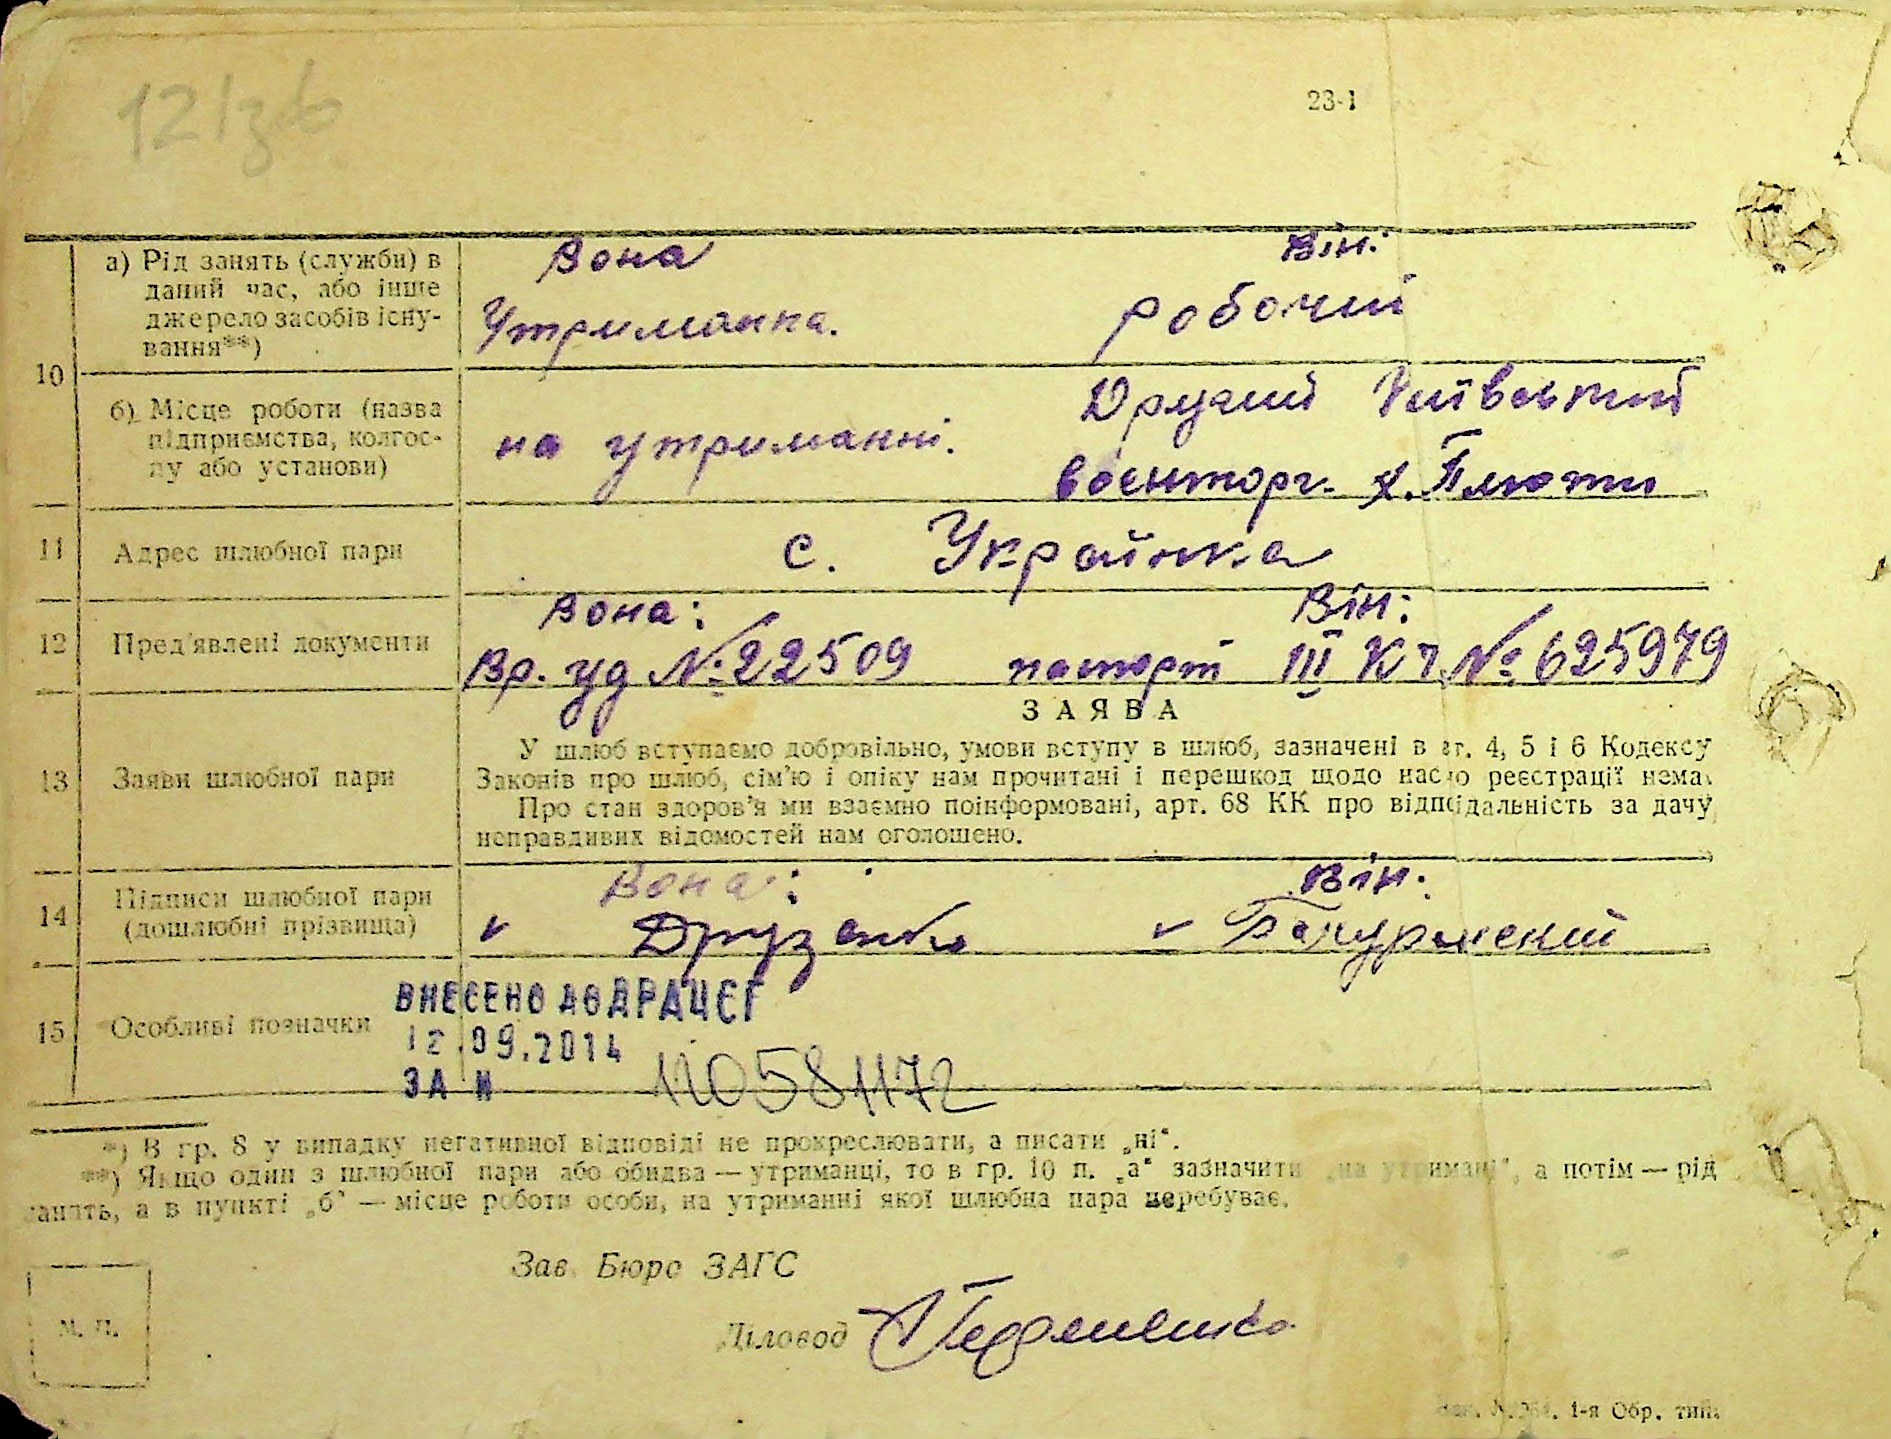 23-1
Вона Він:
а) Рід занять (служби) в
даний час, або інше
джерело засобів існу-
вання**)
Утриманка. робочий
10
б) Місце роботи (назва
підприємства, колгос-
пу або установи)
на утриманні.
Другий Київський
воєнторг. х. Плюти
11 Адрес шлюбної пари с. Українка
Вона: Він:
12 Пред'явлені документи Вр. уд №22509 паспорт III КЧ №625979
ЗАЯВА
13 Заяви шлюбної пари
У шлюб вступаємо добровільно, умови вступу в шлюб, зазначені в ст. 4, 5 і 6 Кодексу
Законів про шлюб, сім'ю і опіку нам прочитані і перешкод щодо нашо реєстрації нема.
Про стан здоров'я ми взаємно поінформовані, арт. 68 КК про відповідальність за дачу
неправдивих відомостей нам оголошено.
Вона: Він:
14 Підписи шлюбної пари
(дошлюбні прізвища)
v Друзенко v
15 Особливі позначки
ВНЕСЕНО ДО ДРАЦСГ
12.09.2014
ЗА N 110581172
*) В гр. 8 у випадку негативної відповіді не прокреслювати, а писати „ні“.
**) Якщо один з шлюбної пари або обидва — утриманці, то в гр. 10 п. „а“ зазначити „на утримані“, а потім — рід
занять, а в пункті „б“ — місце роботи особи, на утриманні якої шлюбна пара перебуває.
Зав. Бюро ЗАГС
Діловод
М. П.
1-я Обр. тип.